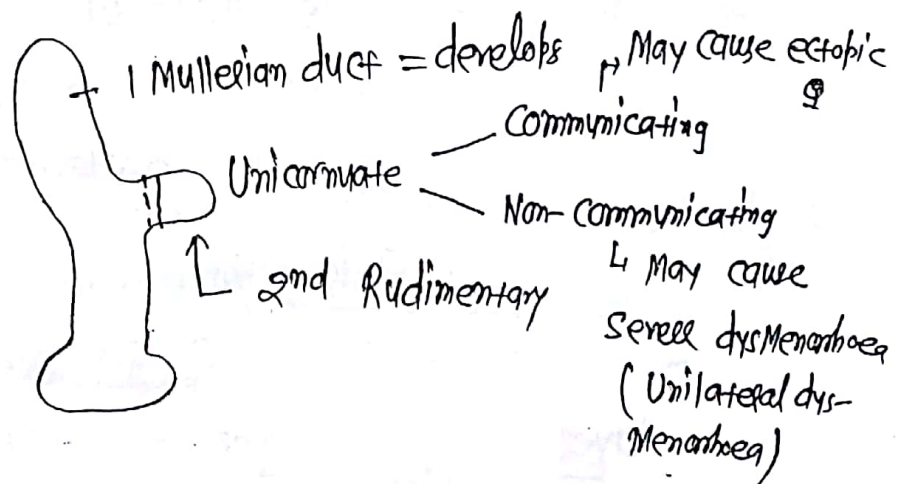 1 Mullerian duct = develops
↱ May cause ectopic
Communicating
Unicornuate
Non-Communicating
↳ May cause
Severe dysMenorrhoea
(Unilateral dys-
Menorrhoea)
2nd Rudimentary